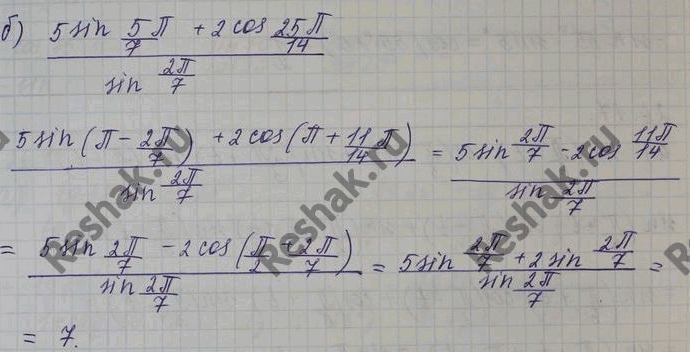 б) (5 sin 5/7 π + 2 cos 25π/14) / (sin 2π/7)
(5 sin (π − 2π/7) + 2 cos (π + 11/14 π)) / (sin 2π/7) = (5 sin 2π/7 − 2 cos 11π/14) / (sin 2π/7)
= (5 sin 2π/7 − 2 cos (π/2 + 2π/7)) / (sin 2π/7) = (5 sin 2π/7 + 2 sin 2π/7) / (sin 2π/7) =
= 7.
Reshak.ru
Reshak.ru
Reshak.ru